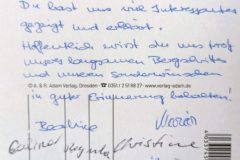 Du hast uns viel Interessantes
gezeigt und erklärt.
Hoffentlich wirst du uns trotz
unseres langsamen Bergschritts
und unseren Sonderwünschen
© A. & R. Adam Verlag, Dresden · ☎ (0351) 2 51 88 27 · www.verlag-adam.de
in guter Erinnerung behalten!
Christine